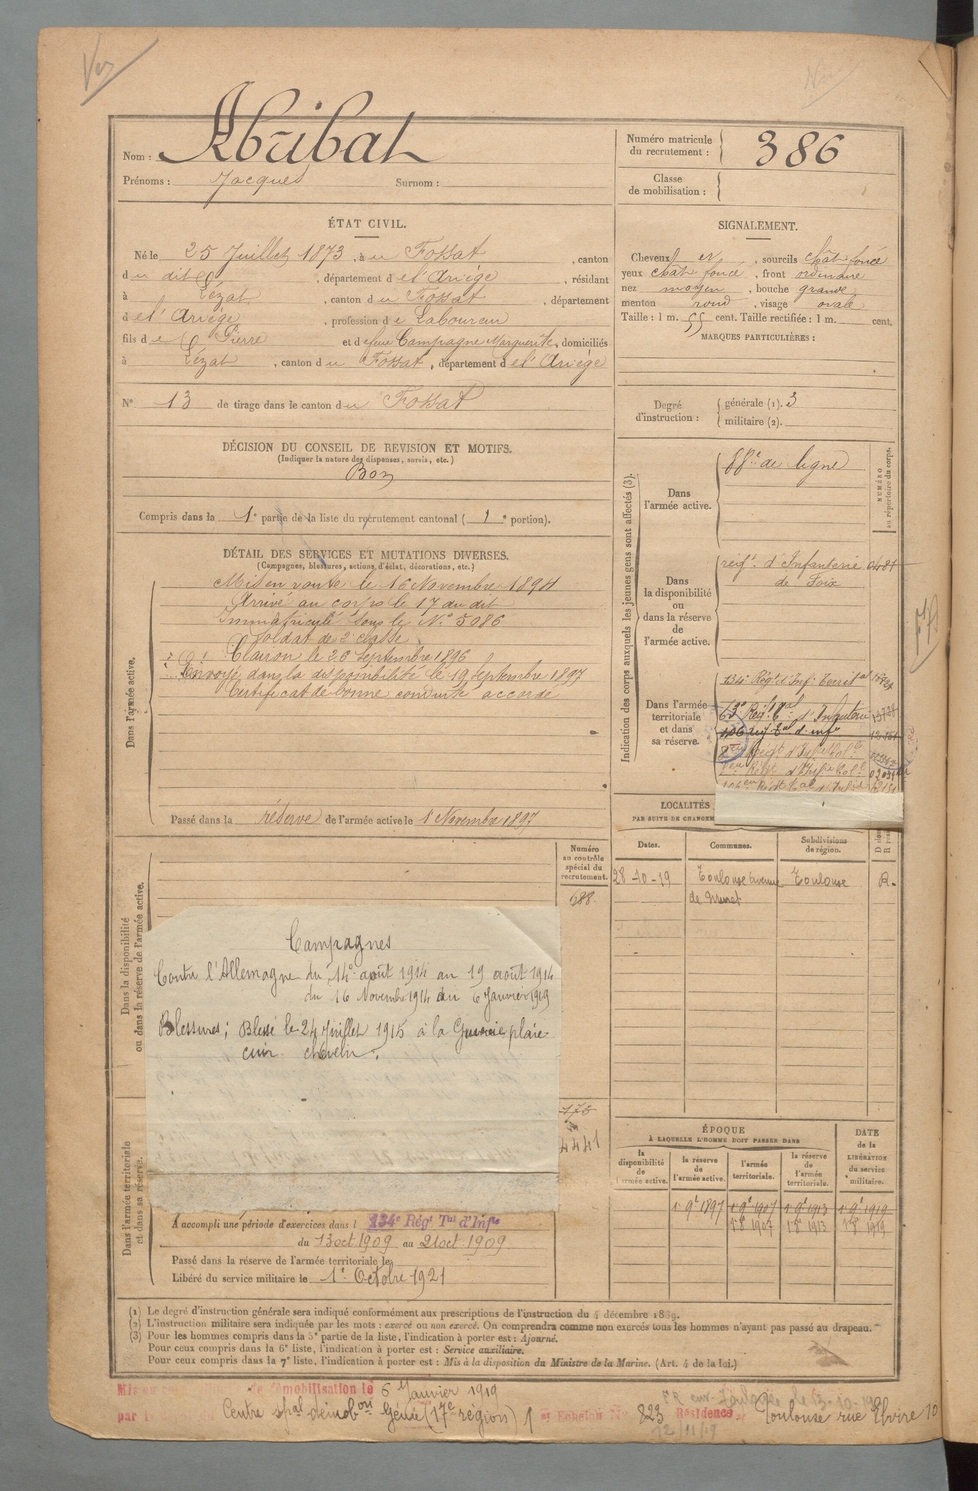 Nom : Abribat
Prénoms : Jacques Surnom :
Numéro matricule du recrutement : 386
Classe de mobilisation :
ÉTAT CIVIL.
Né le 25 Juillet 1873, à u Fossat, canton
du dit, département d e l'Ariège, résidant
à Lézat, canton d u Fossat, département
d e l'Ariège, profession d e Laboureur
fils d e Pierre et d e feue Campagne Marguerite, domiciliés
à Lézat, canton d u Fossat, département d e l'Ariège
N° 13 de tirage dans le canton d u Fossat
SIGNALEMENT.
Cheveux N, sourcils chât. foncé
yeux chât. foncé, front ordinaire
nez moyen, bouche grande
menton rond, visage ovale
Taille : 1 m. 55 cent. Taille rectifiée : 1 m. cent.
MARQUES PARTICULIÈRES :
Degré d'instruction : générale (1). 3
militaire (2).
DÉCISION DU CONSEIL DE REVISION ET MOTIFS.
(Indiquer la nature des dispenses, sursis, etc.)
Bon
Compris dans la 1e partie de la liste du recrutement cantonal ( 1e portion).
DÉTAIL DES SERVICES ET MUTATIONS DIVERSES.
(Campagnes, blessures, actions d'éclat, décorations, etc.)
Dans l'armée active.
Mis en route le 16 Novembre 1894
Arrivé au corps le 17 du dit
Immatriculé sous le N° 5086
Soldat de 2e classe.
Clairon le 20 Septembre 1896
Envoyé dans la disponibilité le 19 Septembre 1897
Certificat de bonne conduite accordé
Passé dans la réserve de l'armée active le 1 Novembre 1897
Indication des corps auxquels les jeunes gens sont affectés (3).
NUMÉRO au répertoire du corps.
Dans l'armée active.
de ligne
Dans la disponibilité ou dans la réserve de l'armée active.
régt. d'Infanterie
de Foix
Dans l'armée territoriale et dans sa réserve.
134e Régt d'Inf. Territ
63e Régt d'Infanterie
LOCALITÉS
PAR SUITE DE CHANGEM
Dates. Communes. Subdivisions de région.
28-10-19 Toulouse avenue de Muret Toulouse R.
Numéro au contrôle spécial du recrutement.
688
Dans la disponibilité ou dans la réserve de l'armée active.
Campagnes
Contre l'Allemagne du 14 août 1914 au 19 août 1914
du 16 Novembre 1914 au 6 Janvier 1919
Blessures ; Blessé le 24 Juillet 1915 à la plaie
cuir chevelu.
4441
Dans l'armée territoriale et dans sa réserve.
A accompli une période d'exercices dans l 134e Régt Tal d'Infie
du 13 oct 1909 au 21 oct 1909
Passé dans la réserve de l'armée territoriale le
Libéré du service militaire le 1er Octobre 1921
ÉPOQUE
À LAQUELLE L'HOMME DOIT PASSER DANS
DATE de la LIBÉRATION du service militaire.
la disponibilité de l'armée active. la réserve de l'armée active. l'armée territoriale. la réserve de l'armée territoriale.
1 9e 1897 1 9e 1907 1 9e 1913 1 9e 1919
1907 1913 1919
(1) Le degré d'instruction générale sera indiqué conformément aux prescriptions de l'instruction du 4 décembre 1889.
(2) L'instruction militaire sera indiquée par les mots : exercé ou non exercé. On comprendra comme non exercés tous les hommes n'ayant pas passé au drapeau.
(3) Pour les hommes compris dans la 5e partie de la liste, l'indication à porter est : Ajourné.
Pour ceux compris dans la 6e liste, l'indication à porter est : Service auxiliaire.
Pour ceux compris dans la 7e liste, l'indication à porter est : Mis à la disposition du Ministre de la Marine. (Art. 4 de la loi.)
démobilisation le 6 Janvier 1919
par Centre spal démobon Génie (17e région) 1er Echelon No 823 Résidence Toulouse rue Elvire 10
12/11/19